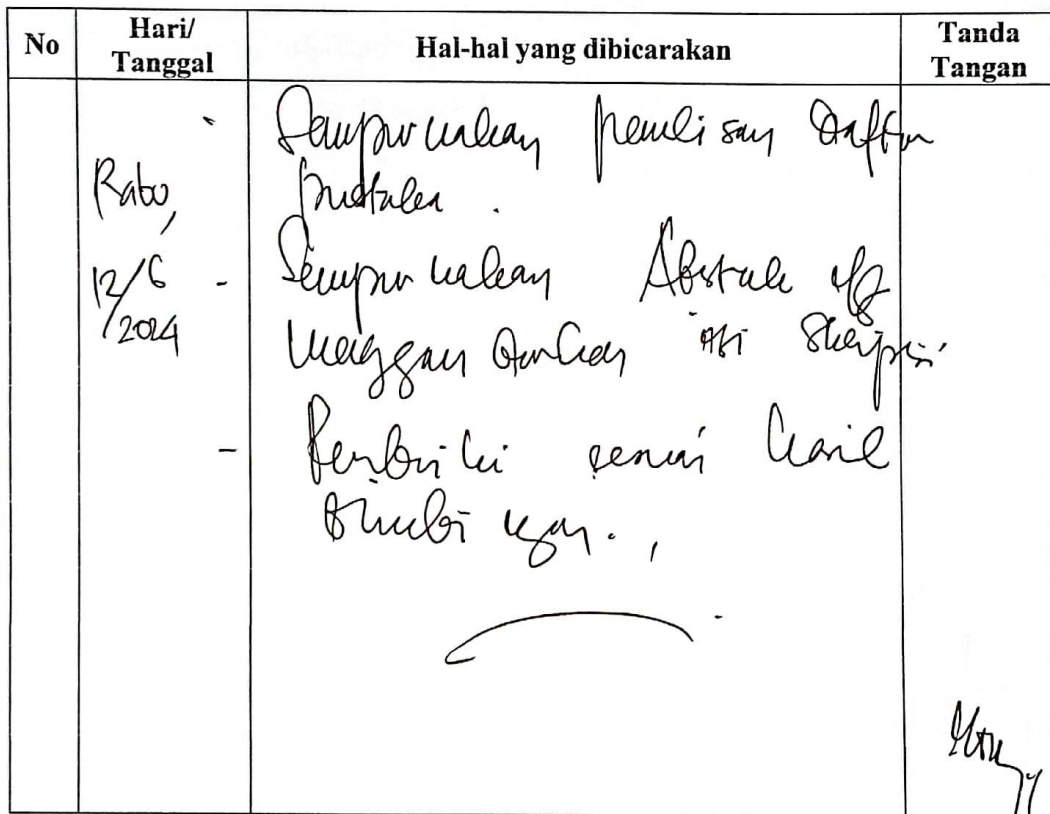 No
Hari/
Tanggal
Hal-hal yang dibicarakan
Tanda
Tangan
Rabu,
12/6
2024
- Sempurnakan penulisan Daftar
pustaka.
- Sempurnakan Abstrak yg
menggambarkan isi Skripsi
- Perbaiki sesuai hasil
bimbingan.